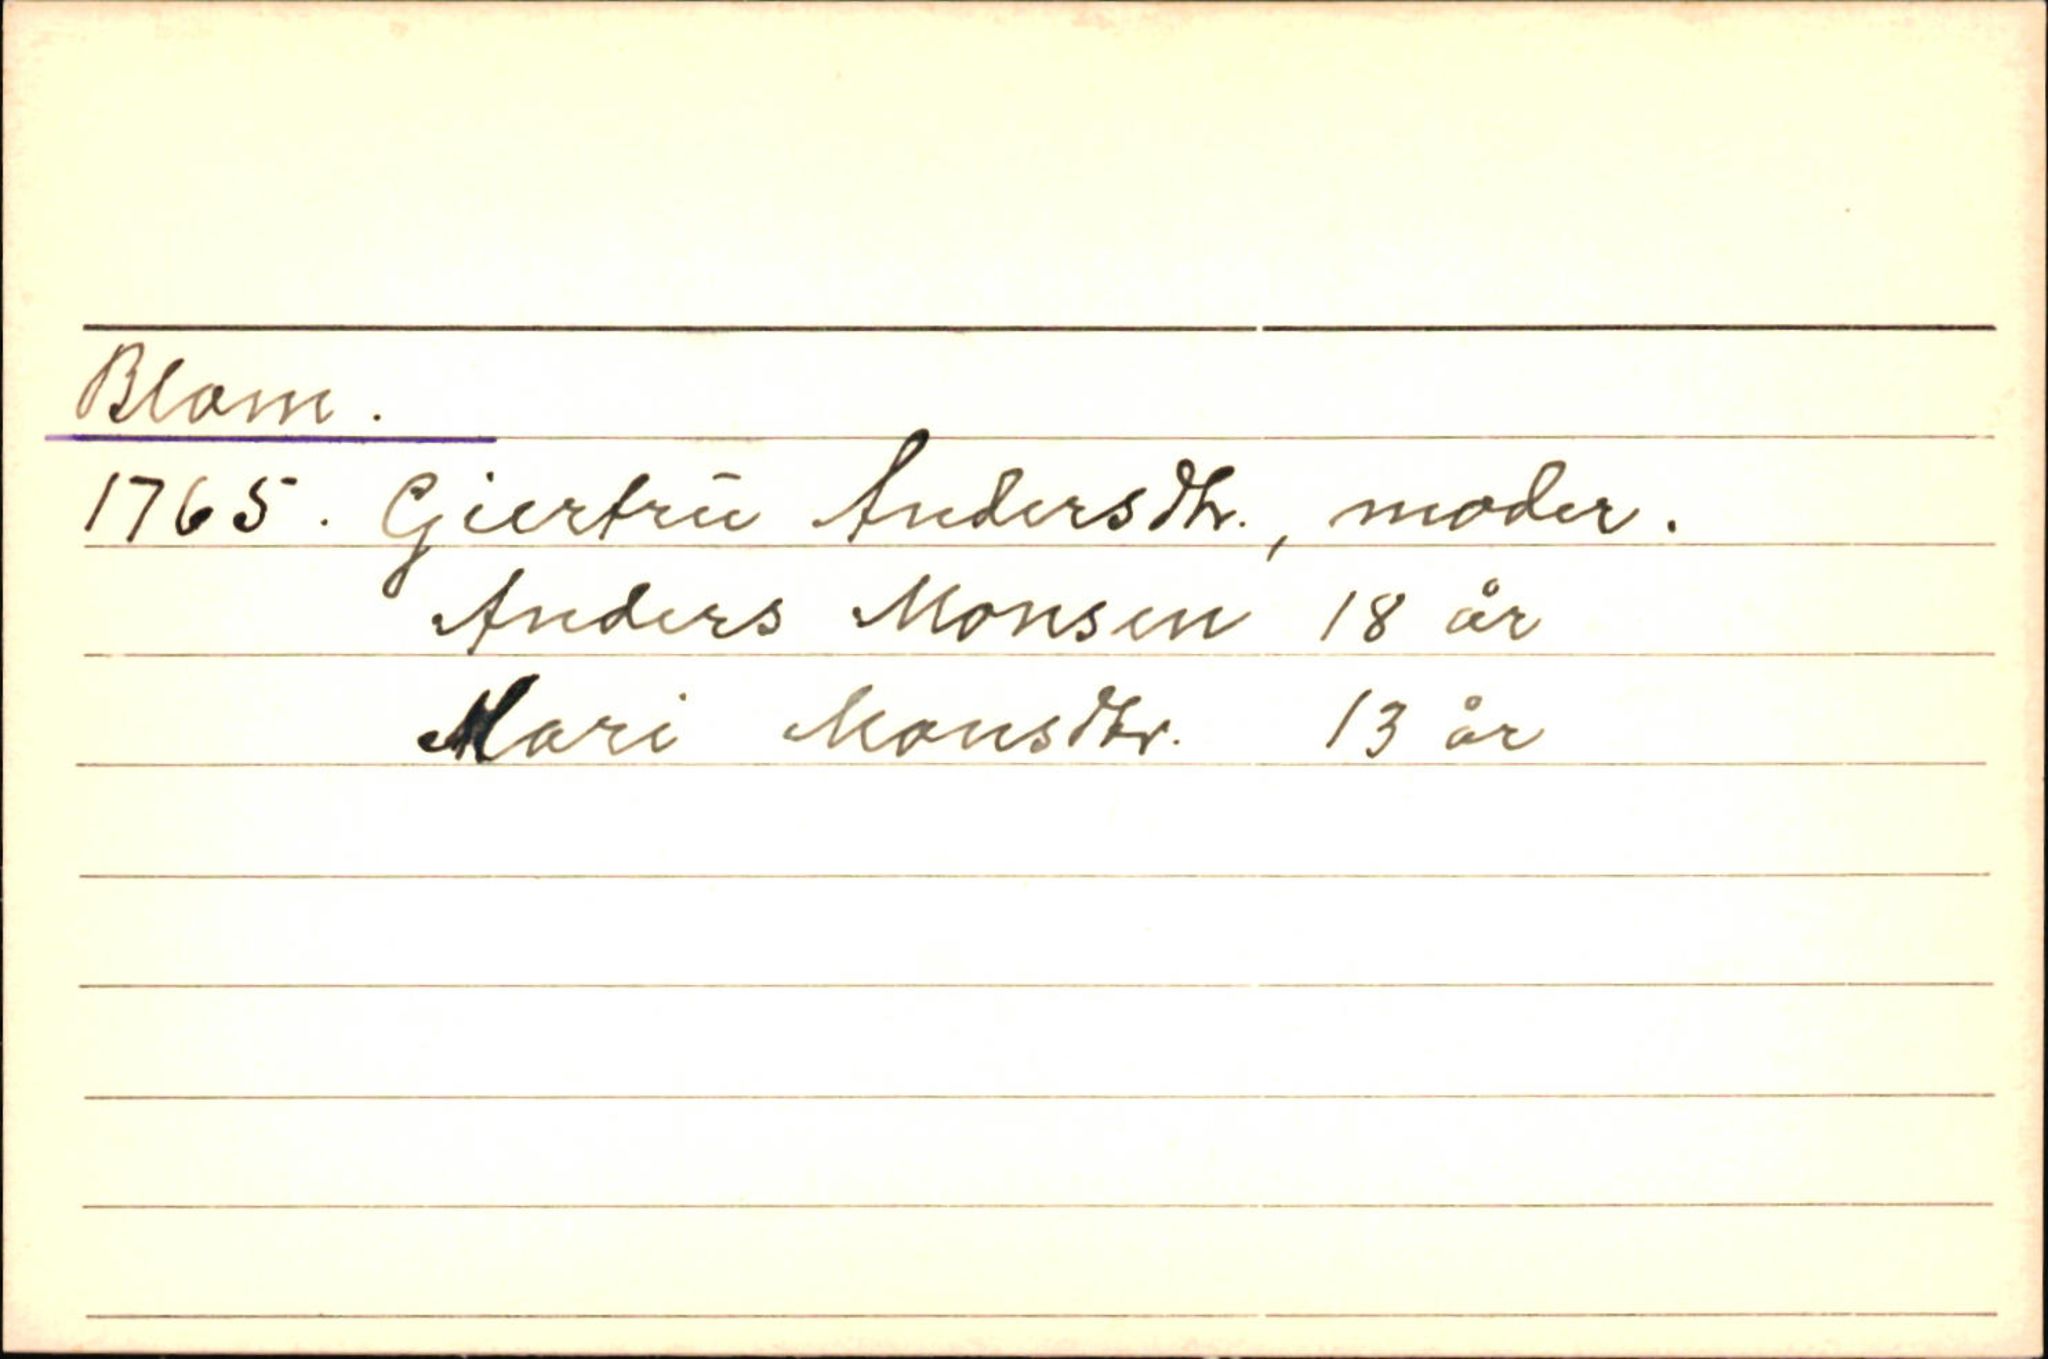 Blom.
1765. Giertrū Andersdtr., moder.
Anders Monsen 18 år
Mari Monsdtr. 13 år